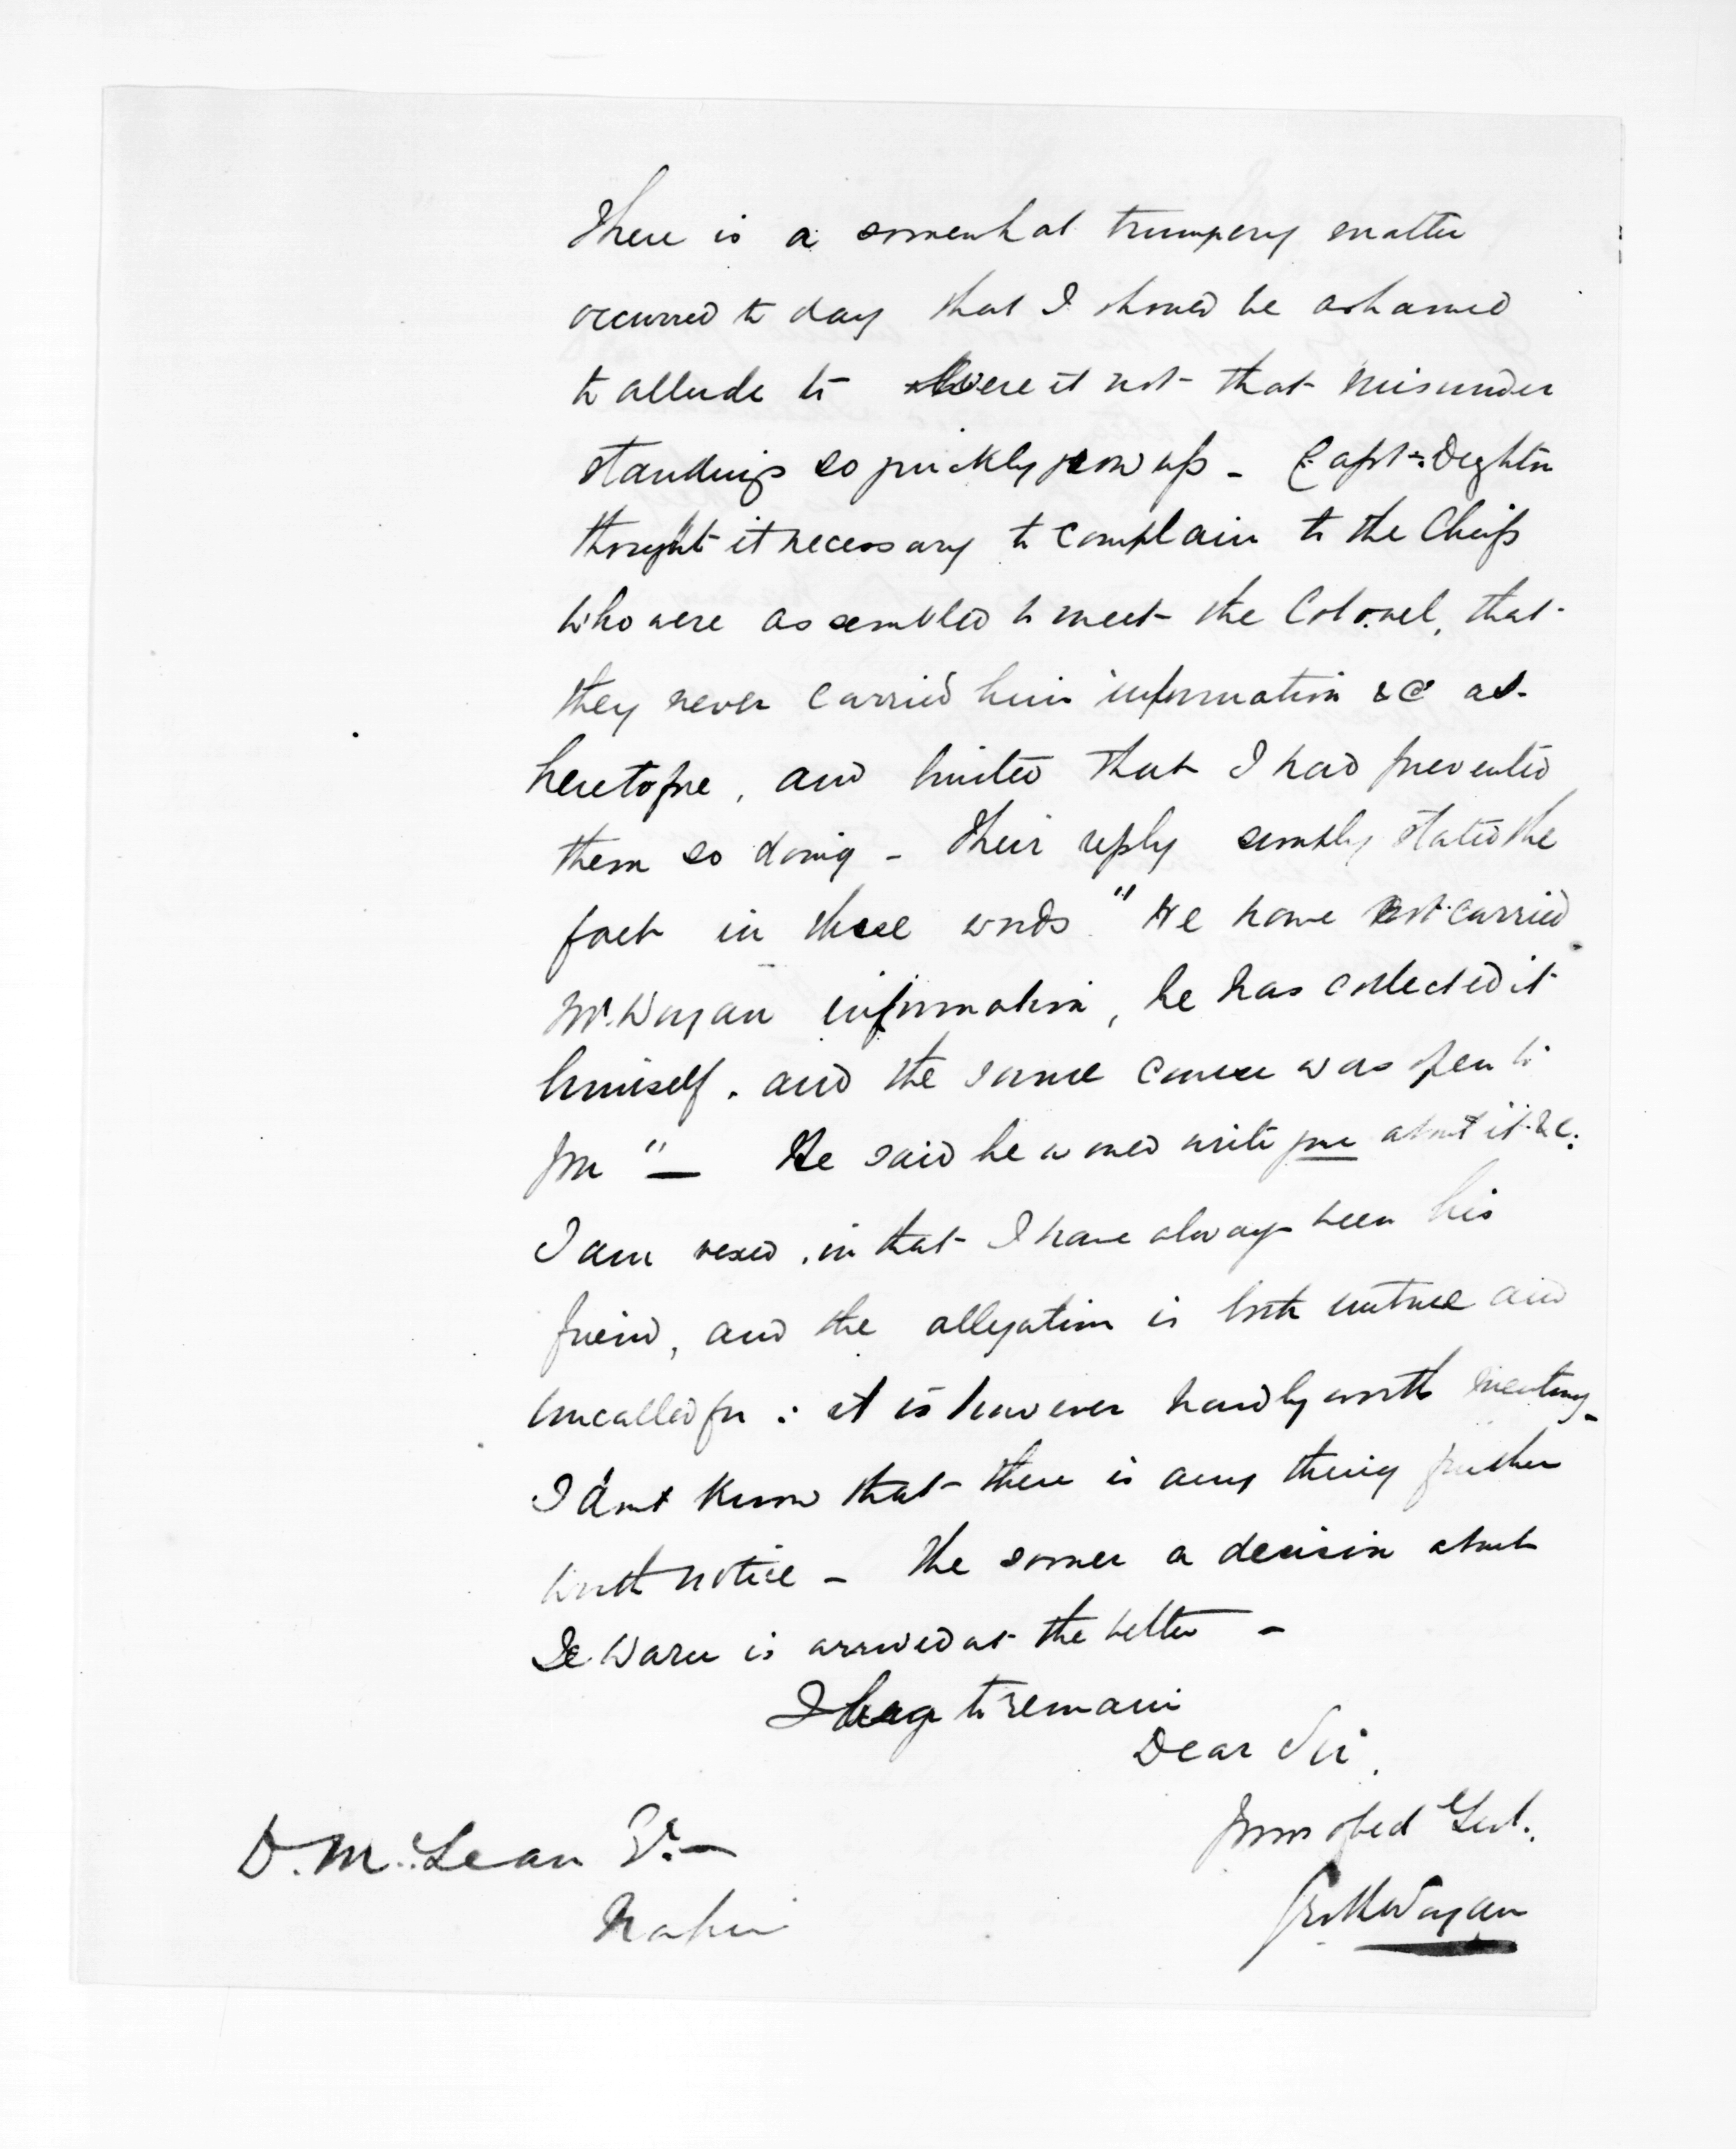 There is a somewhat trumpery matter
occurred to day that I should be ashamed
to allude to were it not that misunder
standings so quickly grow up - Capt. Deighton
thought it necessary to complain to the Chiefs
who were assembled to meet the Colonel, that
they never carried him information &c as
heretofore, and hinted that I had prevented
them so doing - Their reply simply stated the
fact in these words "We have not carried
Mr. Worgan information, he has collected it
himself. and the same course was open to
you" — He said he would write you about it &c.
I am vexed, in that I have always been his
friend, and the allegation is both untrue and
uncalled for: it is however hardly worth meeting -
I dont know that there is any thing further
worth notice - The sooner a decision about
Te Waru is arrived at the better -
I beg to remain
Dear Sir,
Your obed Servt.
Worgan
D. McLean Esq. -
Napier